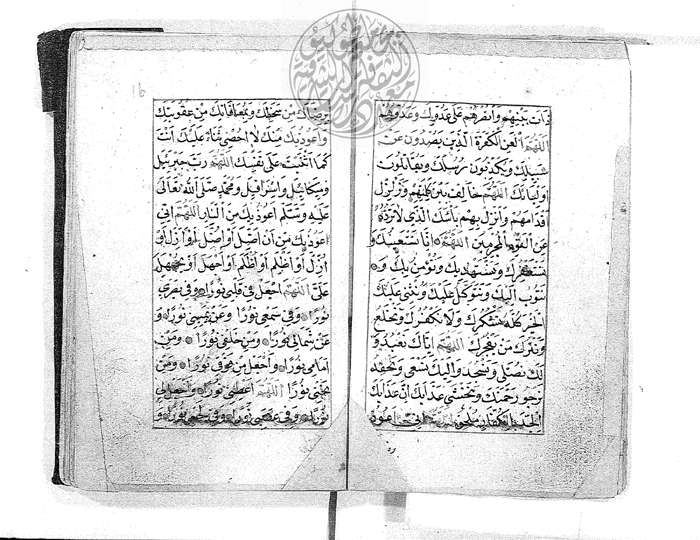 ذات بينهم وانصرهم على عدوك وعدوهم
اللهم العن الكفرة الذين يصدون عن
سبيلك ويكذبون رسلك ويقاتلون
اوليائك اللهم خالف بين كلمتهم وزلزل
اقدامهم وانزل بهم باسك الذي لا ترده
عن القوم المجرمين اللهم انا نستعينك و
نستغفرك ونستهديك ونؤمن بك و
نتوب اليك ونتوكل عليك ونثني عليك
الخير كله نشكرك ولا نكفرك ونخلع
ونترك من يفجرك اللهم اياك نعبد و
لك نصلي ونسجد واليك نسعى ونحفد
نرجو رحمتك ونخشى عذابك ان عذابك
الجد بالكفار ملحق اللهم اني اعوذ
برضاك من سخطك وبمعافاتك من عقوبتك
واعوذ بك منك لا احصي ثناء عليك انت
كما اثنيت على نفسك اللهم رب جبرئيل
وميكائيل واسرافيل ومحمد صلى الله تعالى
عليه وسلم اعوذ بك من النار اللهم اني
اعوذ بك من ان اضل او اضل او ازل او
ازل او اظلم او اظلم او اجهل او يجهل
علي اللهم اجعل في قلبي نورا وفي بصري
نورا وفي سمعي نورا وعن يميني نورا و
عن شمالي نورا ومن خلفي نورا ومن
امامي نورا واجعل من فوقي نورا ومن
تحتي نورا اللهم اعطني نورا واجعل لي
نورا وفي عصبي نورا وفي لحمي نورا و